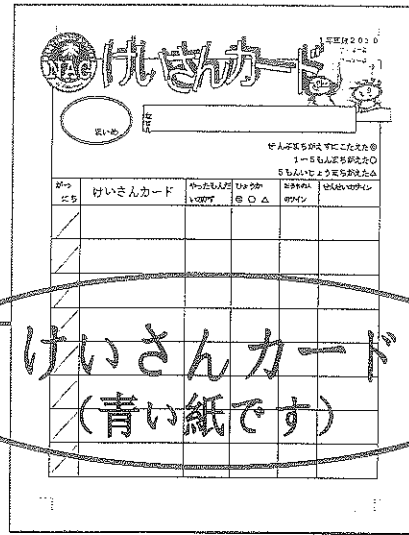 けいさんカード
NAC
まいめ
ぜんぶまちがえずにこたえた◎
1〜5もんまちがえた○
5もんいじょうまちがえた△
がつ にち けいさんカード やったもんだいのかず ひょうか ◎ ○ △ おうちの人のサイン せんせいのサイン
けいさんカード
(青い紙です)